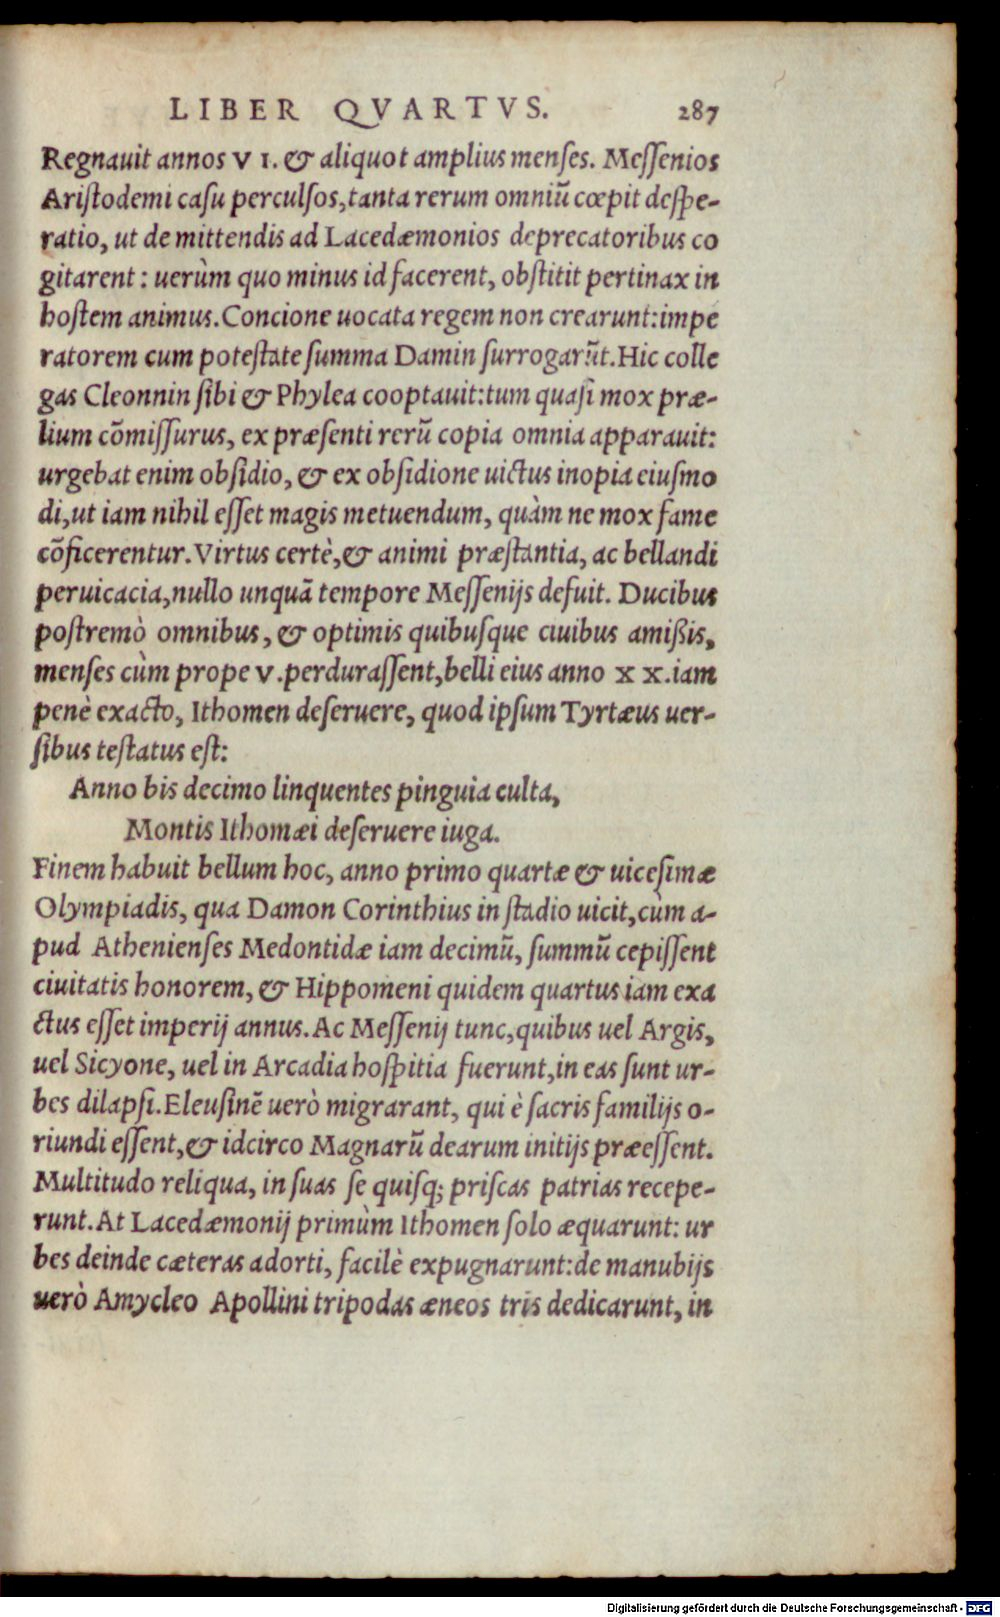 LIBER QVARTVS. 287
Regnauit annos VI. & aliquot amplius menses. Messenios
Aristodemi casu perculsos, tanta rerum omniũ cœpit despe-
ratio, ut de mittendis ad Lacedæmonios deprecatoribus co
gitarent: uerùm quo minus id facerent, obstitit pertinax in
hostem animus. Concione uocata regem non crearunt: impe
ratorem cum potestate summa Damin surrogarũt. Hic colle
gas Cleonnin sibi & Phylea cooptauit: tum quasi mox præ-
lium cõmissurus, ex præsenti rerũ copia omnia apparauit:
urgebat enim obsidio, & ex obsidione uictus inopia eiusmo
di, ut iam nihil esset magis metuendum, quàm ne mox fame
cõficerentur. Virtus certè, & animi præstantia, ac bellandi
peruicacia, nullo unquã tempore Messenijs defuit. Ducibus
postremò omnibus, & optimis quibusque ciuibus amißis,
menses cùm prope V. perdurassent, belli eius anno XX. iam
penè exacto, Ithomen deseruere, quod ipsum Tyrtæus uer-
sibus testatus est:
Anno bis decimo linquentes pinguia culta,
Montis Ithomæi deseruere iuga.
Finem habuit bellum hoc, anno primo quartæ & uicesimæ
Olympiadis, qua Damon Corinthius in stadio uicit, cùm a-
pud Athenienses Medontidæ iam decimũ, summũ cepissent
ciuitatis honorem, & Hippomeni quidem quartus iam exa
ctus esset imperij annus. Ac Messenij tunc, quibus uel Argis,
uel Sicyone, uel in Arcadia hospitia fuerunt, in eas sunt ur-
bes dilapsi. Eleusinẽ uerò migrarant, qui è sacris familijs o-
riundi essent, & idcirco Magnarũ dearum initijs præessent.
Multitudo reliqua, in suas se quisq; priscas patrias recepe-
runt. At Lacedæmonij primùm Ithomen solo æquarunt: ur
bes deinde cæteras adorti, facilè expugnarunt: de manubijs
uerò Amycleo Apollini tripodas æneos tris dedicarunt, in
Digitalisierung gefördert durch die Deutsche Forschungsgemeinschaft - DFG